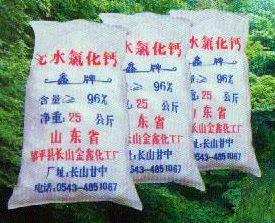 无水氯化钙
鑫牌
含量:≥ 96%
净重:25 公斤
山东省
邹平县长山金鑫化工厂
厂址:长山甘中
电话:0543-4851067
水氯化钙
鑫牌
量:≥ 96%
重:25 公斤
山东省
长山金鑫化工厂
址:长山甘中
0543-4851067
水氯化钙
鑫牌
≥ 96%
25 公斤
东省
山金鑫化工厂
长山甘中
0543-4851067